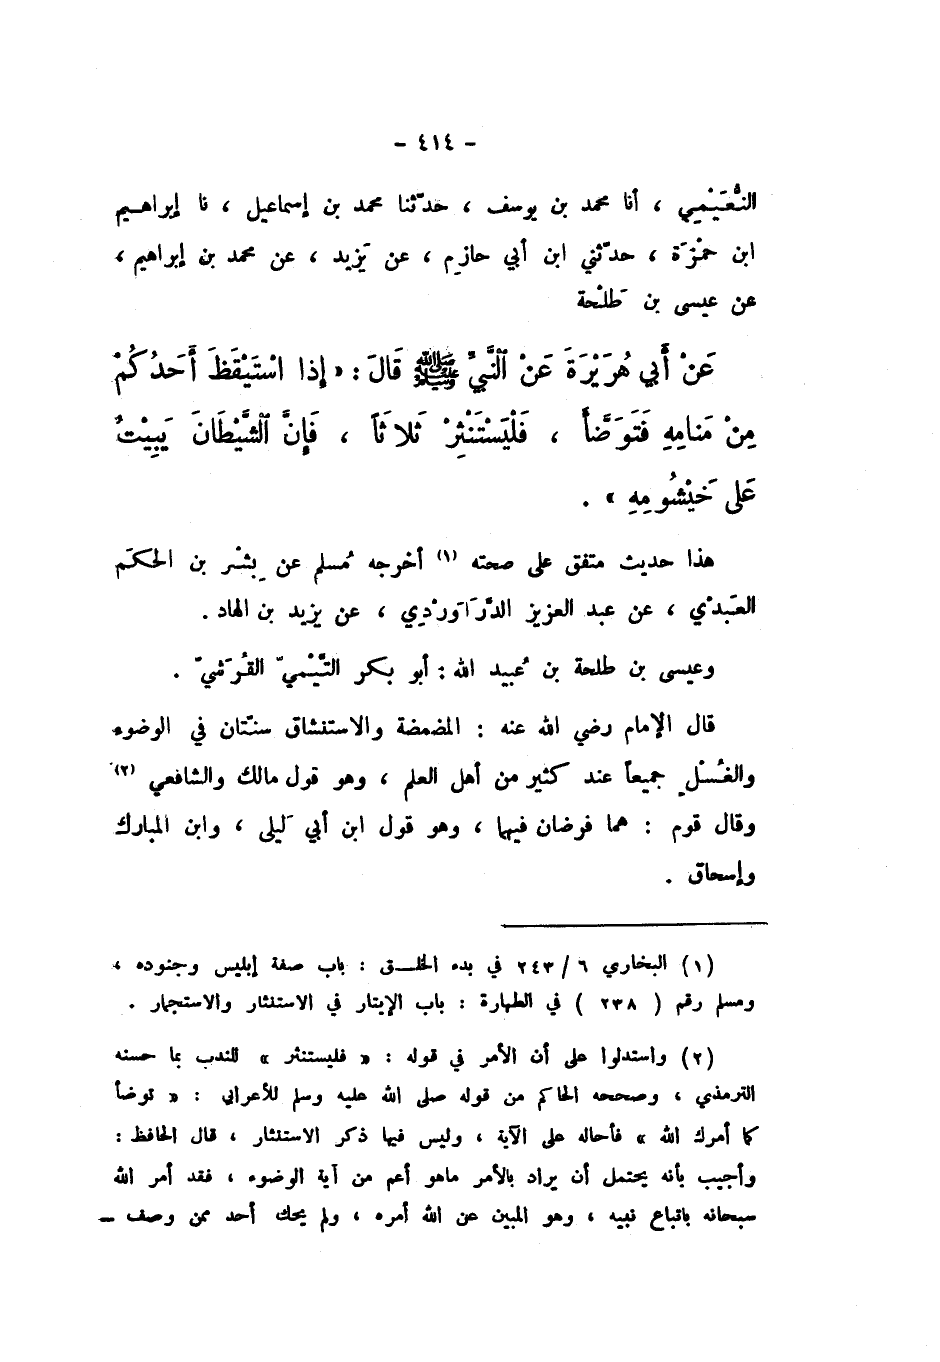 - ٤١٤ -
النُّعَيْمِي ، أنا محمد بن يوسف ، حدّثنا محمد بن إسماعيل ، نا إبراهيم
ابن حمْزَة ، حدّثني ابن أبي حازِم ، عن يَزيد ، عن محمد بن إبراهيم ،
عن عيسى بن طَلْحة
عَنْ أَبي هُرَيْرَةَ عَنْ النَّبيِّ ﷺ قَالَ : « إذا اسْتَيْقَظَ أَحَدُكُمْ
مِنْ مَنامِهِ فَتَوَضَّأَ ، فَلْيَسْتَنْثِرْ ثَلاثَاً ، فَإِنَّ الشَّيْطَانَ يَبِيْتُ
عَلى خَيْشُومِهِ » .
هذا حديث متفق على صحته (١) أخرجه مُسلم عن بِشْر بن الحكَم
العَبدْي ، عن عبد العزيز الدَّرَاوَرْدِي ، عن يزيد بن الهاد .
وعيسى بن طلحة بن عُبيد الله : أبو بكر التَّيْميّ القُرَشيّ .
قال الإمام رضي الله عنه : المضمضة والاستنشاق سنّتان في الوضوء
والغُسْلِ جميعاً عند كثير من أهل العلم ، وهو قول مالك والشافعي (٢)
وقال قوم : هما فرضان فيها ، وهو قول ابن أبي لَيلى ، وابن المبارك
وإسحاق .
(١) البخاري ٦ / ٢٤٣ في بدء الخلق : باب صفة إبليس وجنوده ،
ومسلم رقم ( ٢٣٨ ) في الطهارة : باب الإيتار في الاستنثار والاستجمار .
(٢) واستدلوا على أن الأمر في قوله : « فليستنثر » للندب بما حسنه
الترمذي ، وصححه الحاكم من قوله صلى الله عليه وسلم للأعرابي : « توضأ
كما أمرك الله » فأحاله على الآية ، وليس فيها ذكر الاستنثار ، قال الحافظ :
وأجيب بأنه يحتمل أن يراد بالأمر ماهو أعم من آية الوضوء ، فقد أمر الله
سبحانه باتباع نبيه ، وهو المبين عن الله أمره ، ولم يحك أحد ممن وصف ــ